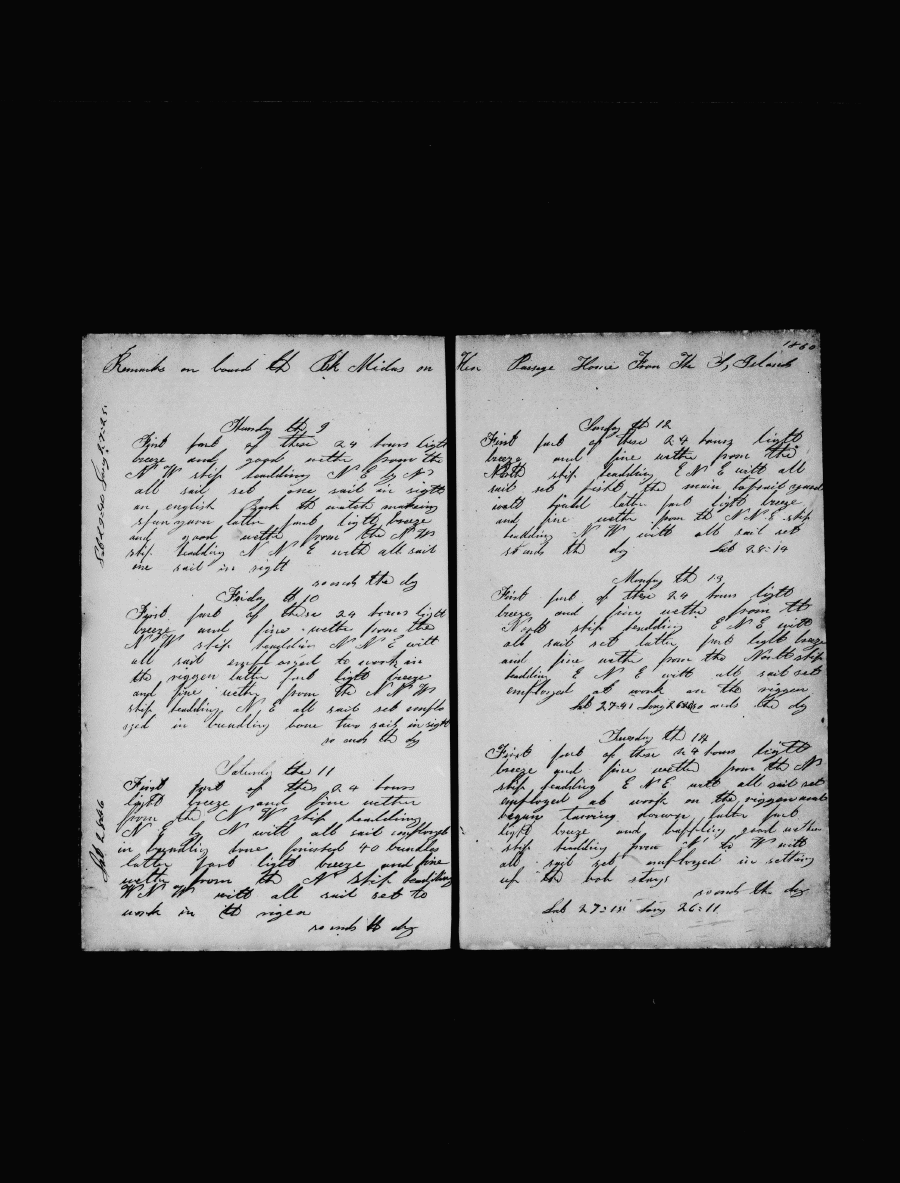 Remarks on board the Bk Midas on
Thursday the 9
First part of these 24 hours light
breeze and good wether from the
N W ship headding N E by N
all sail set one sail in sight
an english Bark the watch making
spunyarn latter part light breeze
and good wether from the N W
ship headding N N E with all sail
one sail in sight
so ends the day
Friday th 10
First part of these 24 hours light
breeze and fine wether from the
N W ship headdin N N E with
all sail set to work in
the riggen latter part light breeze
and fine wether from the N N W
ship headding N E all sail set emplo
yed in bundling bone two sail in sight
so ends the day
Saturday the 11
First part of thes 24 hours
light breeze and fine wether
from the N W ship headding
N E by N with all sail employed
in bundling bone finished 40 bundles
latter part light breeze and fine
wether from the N ship headding
W N W with all sail set to
work in the rigen
so ends the day
Lat 28:46
Her Passage Home From The S, Island
1860
Sunday th 12
First part of these 24 hours light
breeze and fine wether from the
North ship headding E N E with all
sail set fisht the main topsail yard
latter part light breeze
and fine wether from the N N E ship
headding N W with all sail set
so ends the day Lat 28:14
Monday th 13
First part of these 24 hours light
breeze and fine wether from the
North ship headding E N E with
all sail set latter part light breeze
and fine wether from the North ship
headding E N E with all sail set
employed at work on the riggen
Lat 27:41 Long so ends the day
Tuesday th 14
First part of these 24 hours light
breeze and fine wether from the N
ship headding E N E with all sail set
employed at work on the riggen and
begun tarring down latter part
light breeze and baffling good wether
ship headding from N to W with
all sail set employed in setting
up the bob stays
so ends the day
Lat 27:15 Long 26:11